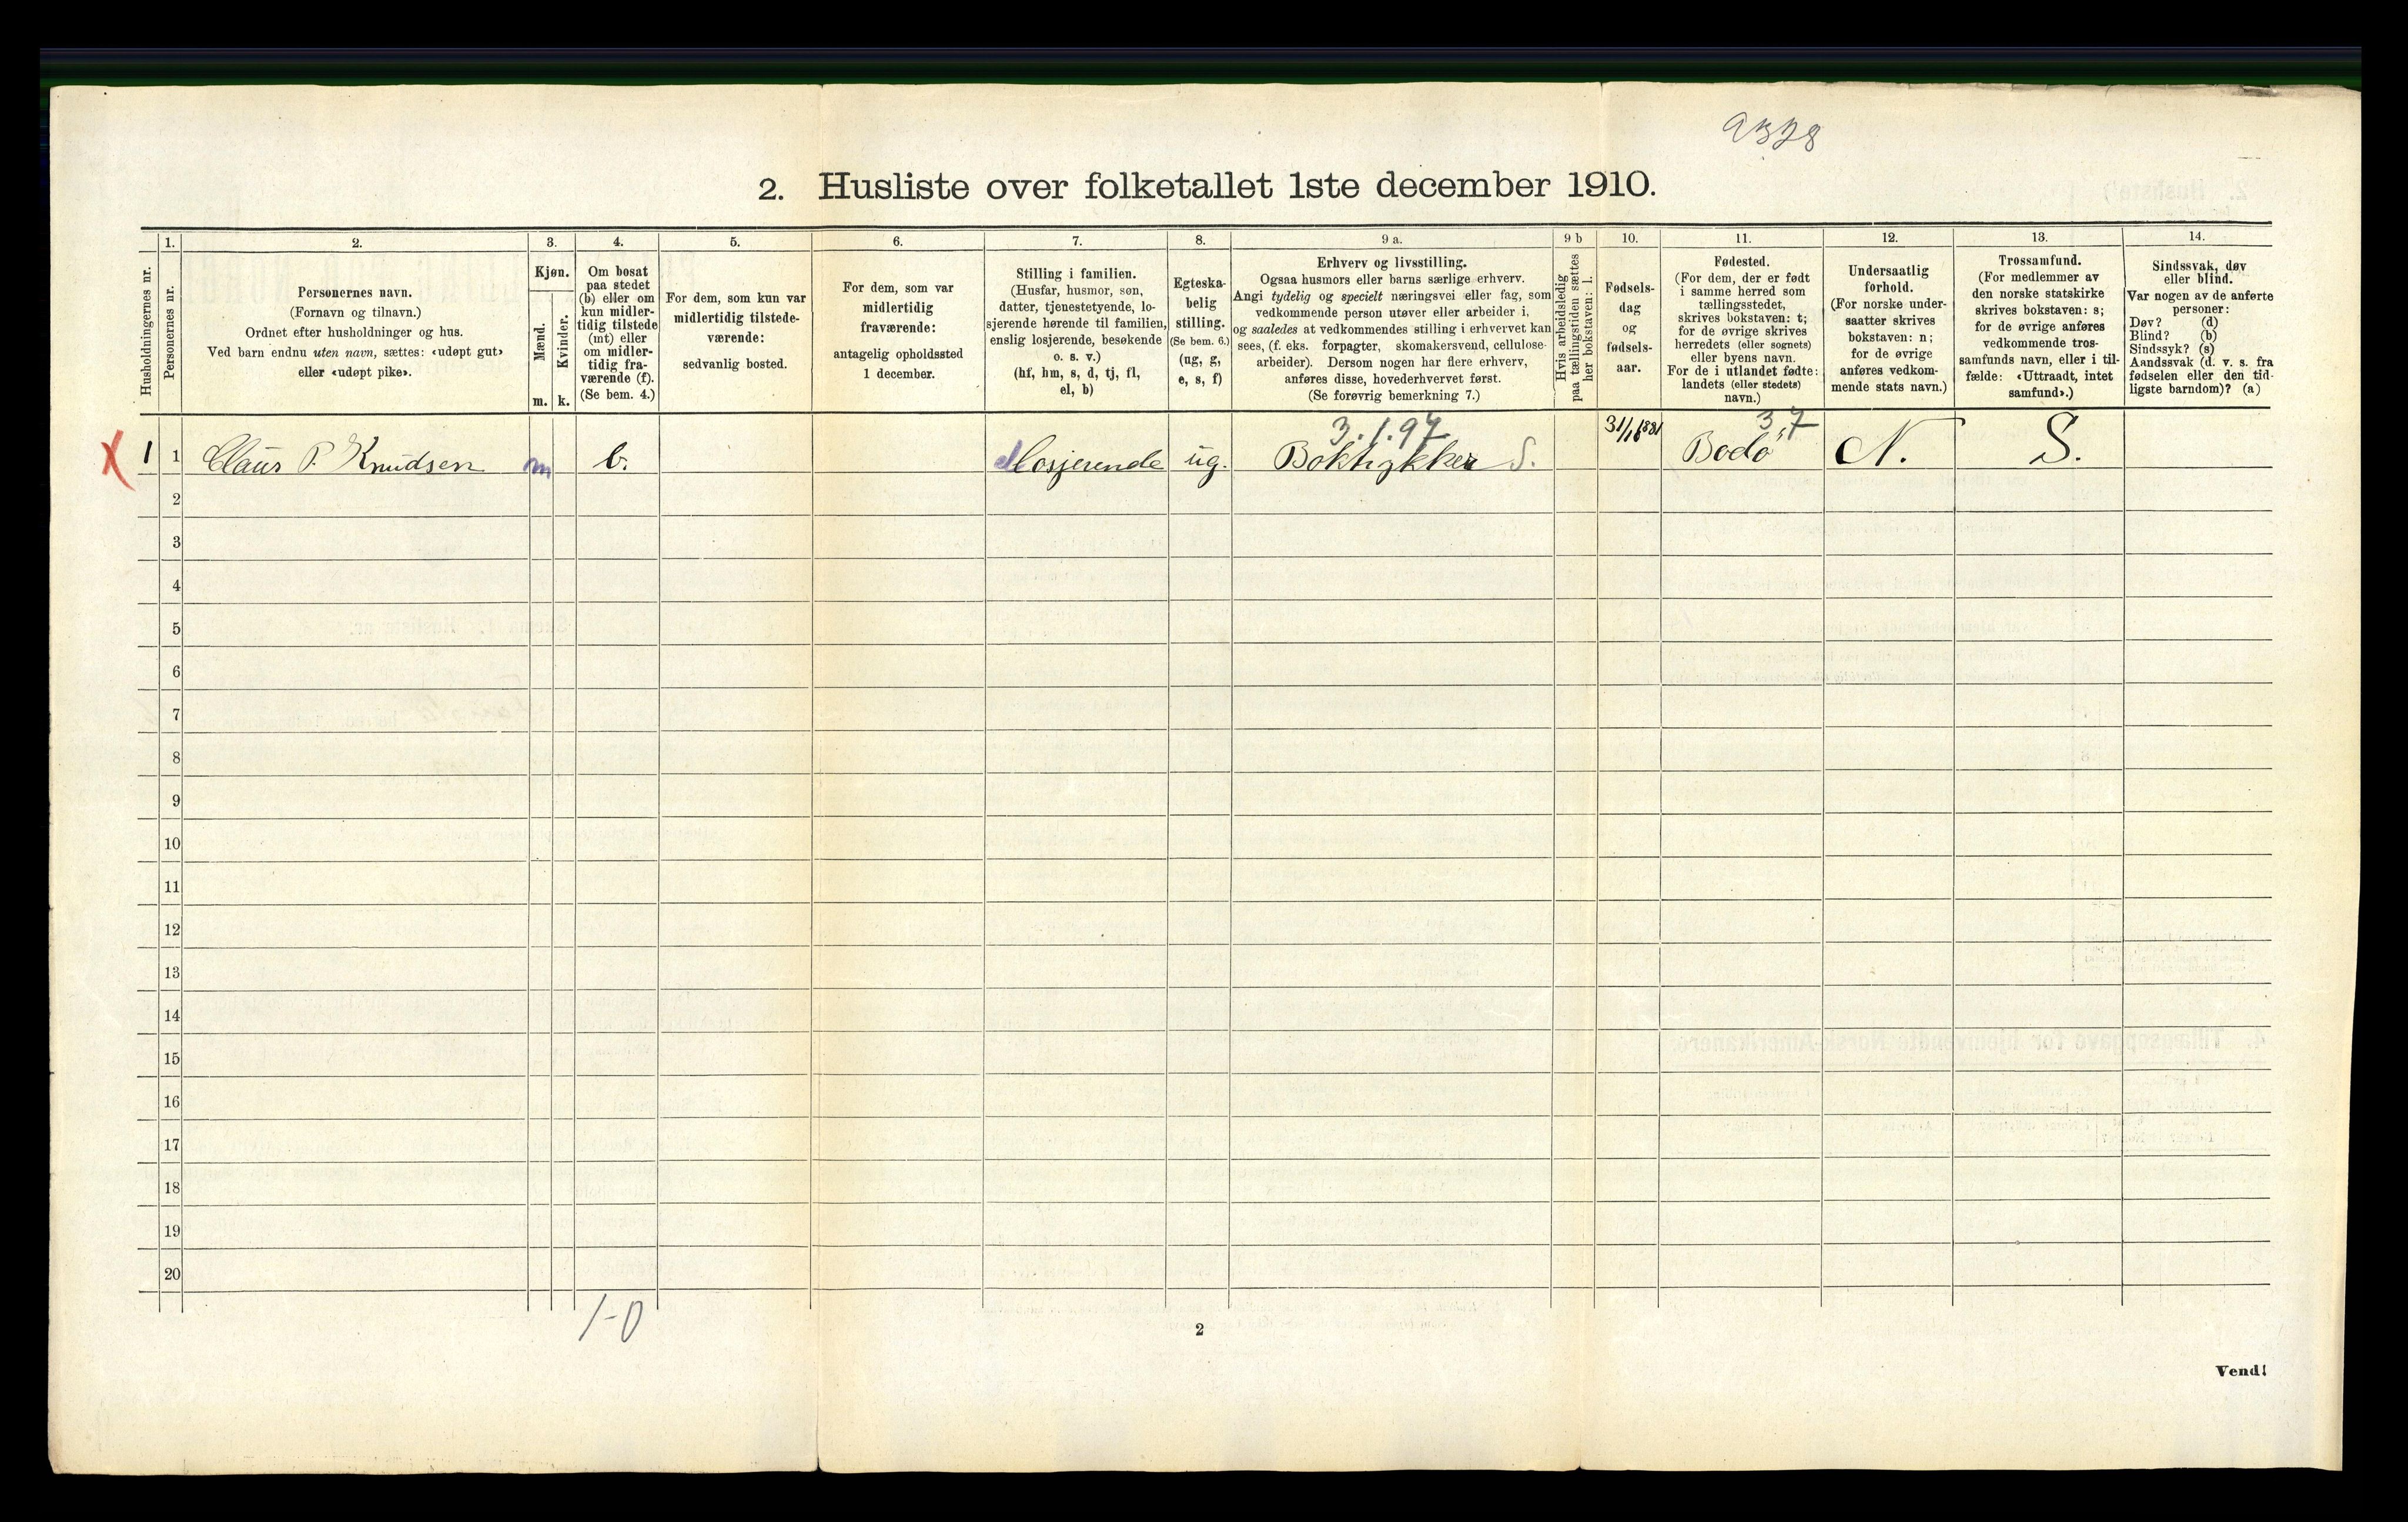 2. Husliste over folketallet 1ste december 1910.
Husholdningernes nr.
1.
Personernes nr.
2.
Personernes navn.
(Fornavn og tilnavn.)
Ordnet efter husholdninger og hus.
Ved barn endnu uten navn, sættes: «udøpt gut»
eller «udøpt pike».
3.
Kjøn.
Mænd.
Kvinder.
m. k.
4.
Om bosat
paa stedet
(b) eller om
kun midler-
tidig tilstede
(mt) eller
om midler-
tidig fra-
værende (f).
(Se bem. 4.)
5.
For dem, som kun var
midlertidig tilstede-
værende:
sedvanlig bosted.
6.
For dem, som var
midlertidig
fraværende:
antagelig opholdssted
1 december.
7.
Stilling i familien.
(Husfar, husmor, søn,
datter, tjenestetyende, lo-
sjerende hørende til familien,
enslig losjerende, besøkende
o. s. v.)
(hf, hm, s, d, tj, fl,
el, b)
8.
Egteska-
belig
stilling.
(Se bem. 6.)
(ug, g,
e, s, f)
9 a.
Erhverv og livsstilling.
Ogsaa husmors eller barns særlige erhverv.
Angi tydelig og specielt næringsvei eller fag, som
vedkommende person utøver eller arbeider i,
og saaledes at vedkommendes stilling i erhvervet kan
sees, (f. eks. forpagter, skomakersvend, cellulose-
arbeider). Dersom nogen har flere erhverv,
anføres disse, hovederhvervet først.
(Se forøvrig bemerkning 7.)
9 b
Hvis arbeidsledig
paa tællingstiden sættes
her bokstaven: l.
10.
Fødsels-
dag
og
fødsels-
aar.
11.
Fødested.
(For dem, der er født
i samme herred som
tællingsstedet,
skrives bokstaven: t;
for de øvrige skrives
herredets (eller sognets)
eller byens navn.
For de i utlandet fødte:
landets (eller stedets)
navn.)
12.
Undersaatlig
forhold.
(For norske under-
saatter skrives
bokstaven: n;
for de øvrige
anføres vedkom-
mende stats navn.)
13.
Trossamfund.
(For medlemmer av
den norske statskirke
skrives bokstaven: s;
for de øvrige anføres
vedkommende tros-
samfunds navn, eller i til-
fælde: «Uttraadt, intet
samfund».)
14.
Sindssvak, døv
eller blind.
Var nogen av de anførte
personer:
Døv? (d)
Blind? (b)
Sindssyk? (s)
Aandssvak (d. v. s. fra
fødselen eller den tid-
ligste barndom)? (a)
3.1.97 37
X 1 1 Claus P. Knudsen m b. el Losjerende ug. Boktrykker S. Bodö N. S.
2
3
4
5
6
7
8
9
10
11
12
13
14
15
16
17
18
19
20
1-0
2
Vend!